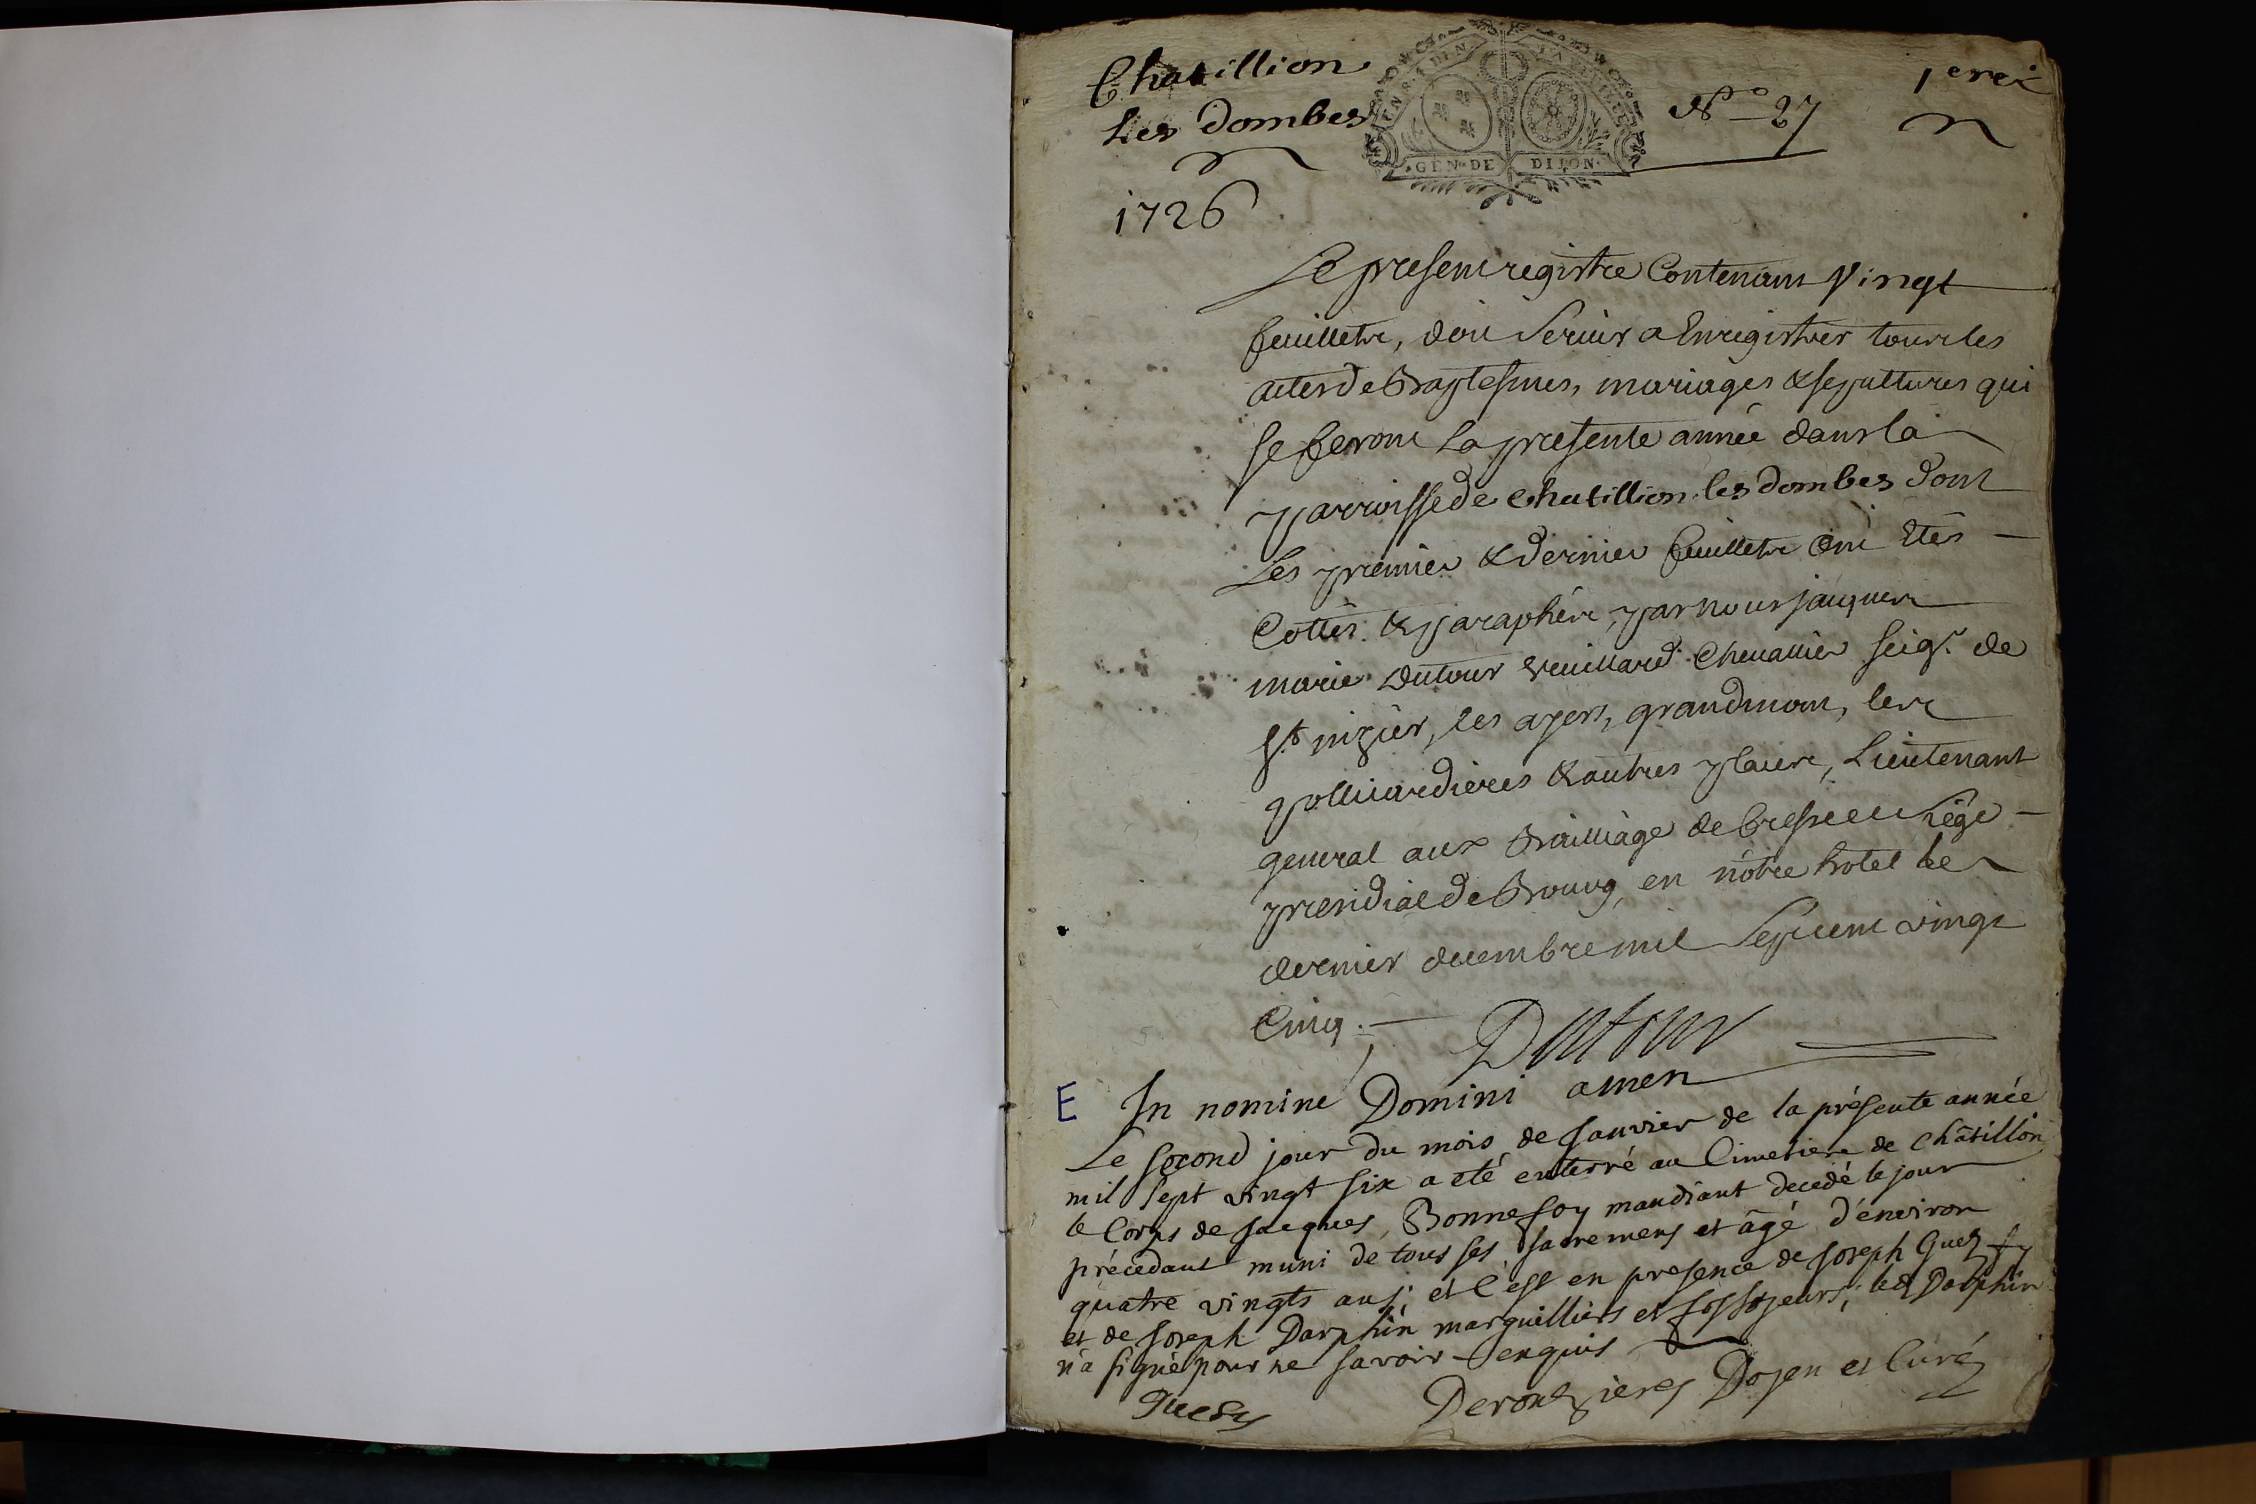 Chatillion
Les dombes
N.o 27
1er
1726
GEN. DE DIJON.
Le present registre Contenant Vingt
feuillets, doit Servir a Enregistrer tous les
actes de Baptesmes, mariages & sepultures qui
se feront La presente année dans la
parroisse de Chatillion les dombes dont
Les premier & dernier feuillets ont Etés
Cottés & paraphés, par nous jacques
marie Dutour Vuillard Chevallier seigr. de
St. nizier, les ayers, grandmont, les
polliardieres & autres places, Lieutenant
general aux Bailliage de bresse et Siége
presidial de Bourg, en nôtre hotel le
dernier decembre mil Sept cent vingt
Cinq.
Dutour
E In nomine Domini amen
Le second jour du mois de Janvier de la présente année
mil Sept vingt six a eté enterré au Cimetiere de Châtillon
le Corps de Jacques Bonnefoy mandiant decedé le jour
précedant muni de tous ses sacremens et âgé d'énviron
quatre vingts ans; et c'est en presence de Joseph
et de Joseph Darphin marguilliers et fossoyeurs; led Darphin
n'a signé pour ne savoir enquis
Deroulzieres Doyen et Curé